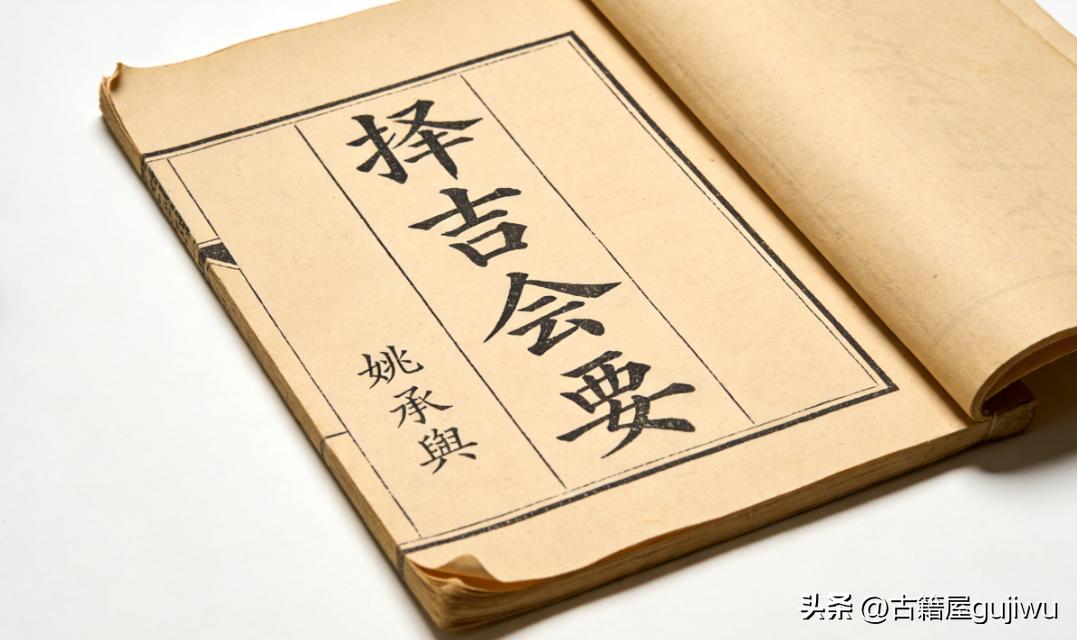 择吉会要
姚承舆
头条 @古籍屋gujiwu